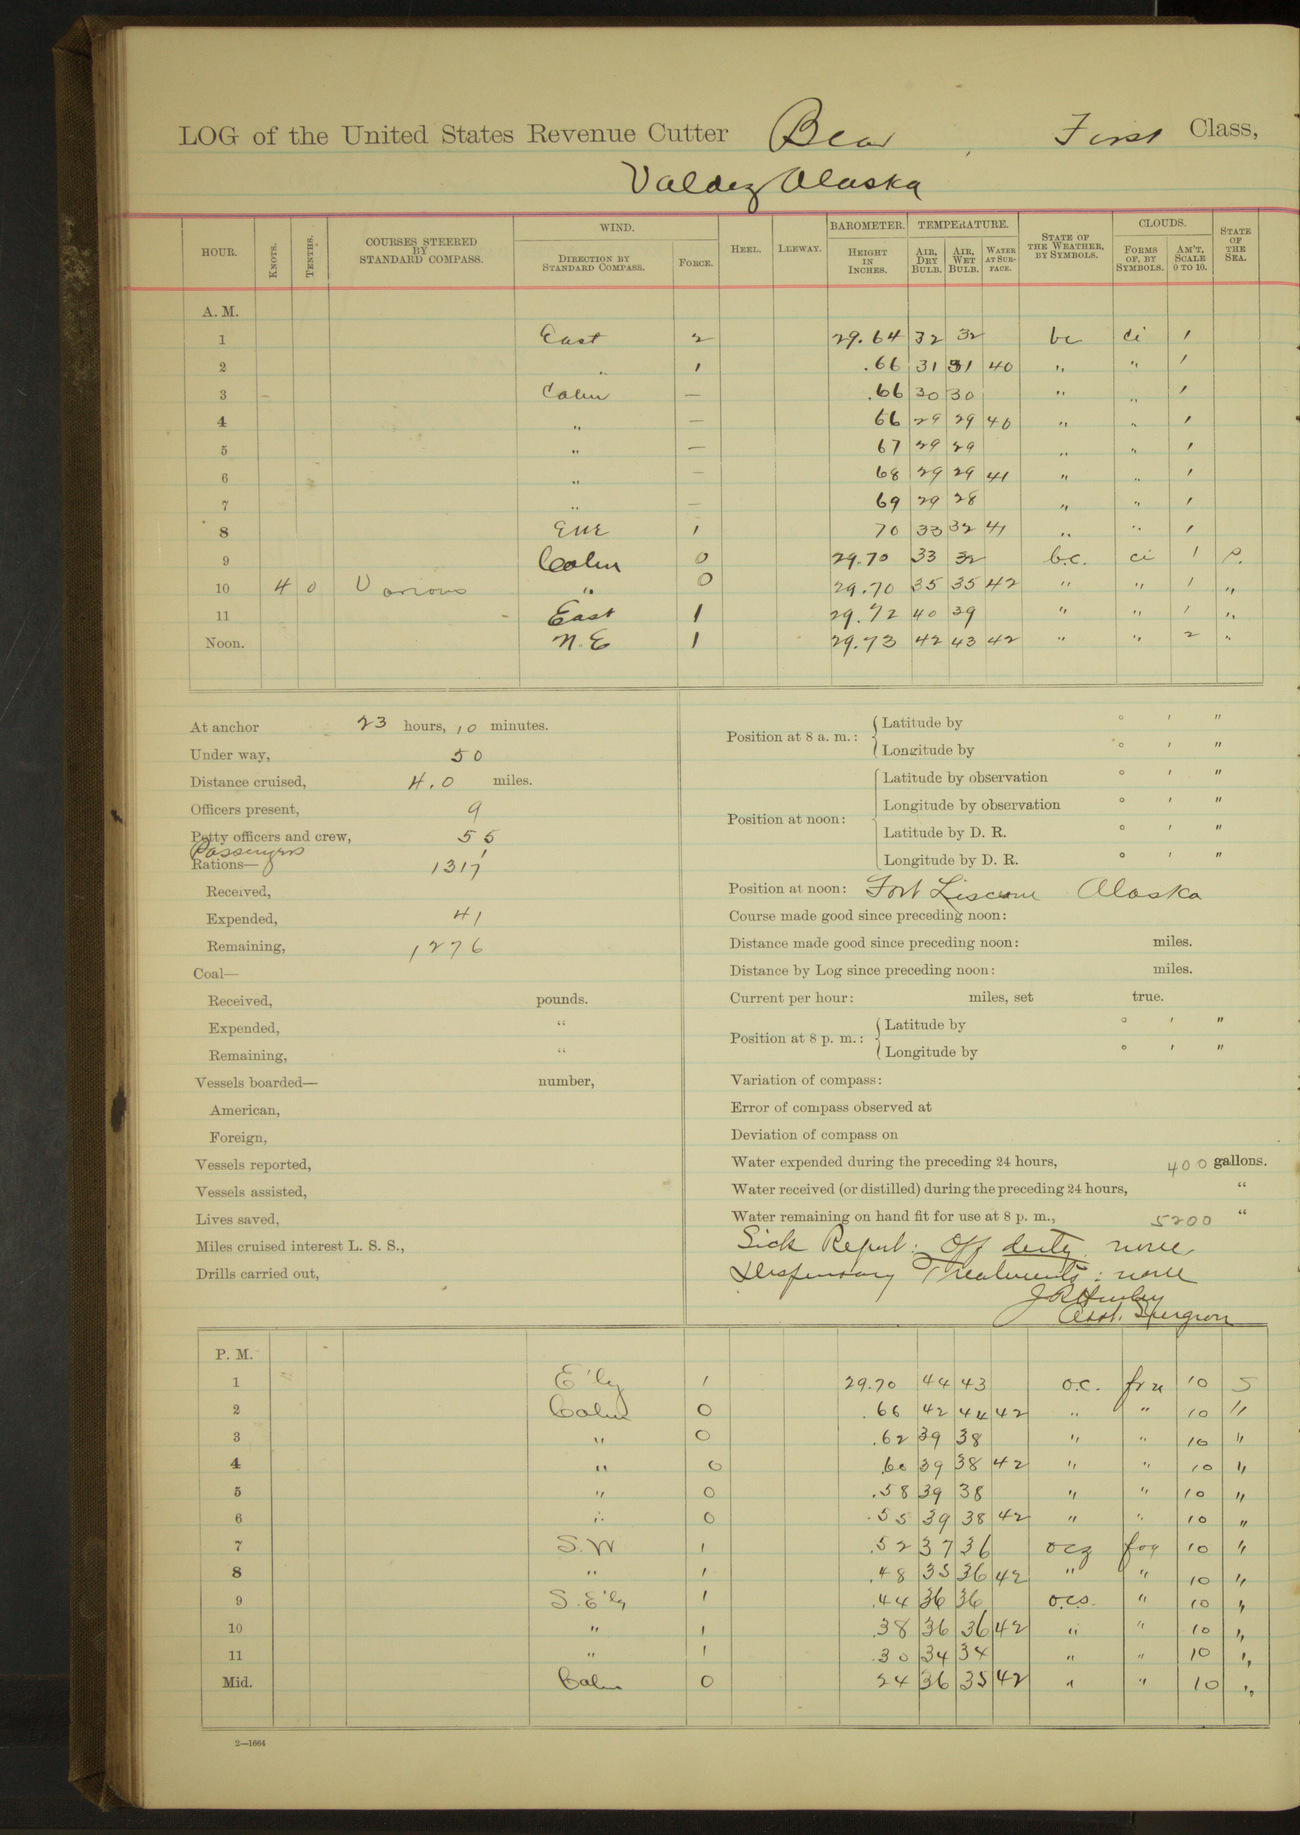 LOG of the United States Revenue Cutter Bear, First Class,
Valdez Alaska
HOUR. KNOTS. TENTHS. COURSES STEERED BY STANDARD COMPASS. WIND. DIRECTION BY STANDARD COMPASS. FORCE. HEEL. LEEWAY. BAROMETER. HEIGHT IN INCHES. TEMPERATURE. AIR, DRY BULB. AIR, WET BULB. WATER AT SURFACE. STATE OF THE WEATHER, BY SYMBOLS. CLOUDS. FORMS OF, BY SYMBOLS. AM'T, SCALE 0 TO 10. STATE OF THE SEA.
A. M.
1 East 2 29.64 32 32 bc ci 1
2 " 1 .66 31 31 40 " " 1
3 Calm — .66 30 30 " " 1
4 " — 66 29 29 40 " " 1
5 " — 67 29 29 " " 1
6 " — 68 29 29 41 " " 1
7 " — 69 29 28 " " 1
8 ENE 1 70 33 32 41 " " 1
9 Calm 0 29.70 33 32 b.c. ci 1 S.
10 4 0 Various " 0 29.70 35 35 42 " " 1 "
11 East 1 29.72 40 39 " " 1 "
Noon. N.E 1 29.73 42 43 42 " " 2 "
At anchor 23 hours, 10 minutes.
Under way, 50
Distance cruised, 4.0 miles.
Officers present, 9
Petty officers and crew, 55
Passengers 1
Rations— 1317
Received,
Expended, 41
Remaining, 1276
Coal—
Received, pounds.
Expended, "
Remaining, "
Vessels boarded— number,
American,
Foreign,
Vessels reported,
Vessels assisted,
Lives saved,
Miles cruised interest L. S. S.,
Drills carried out,
Position at 8 a. m.: Latitude by ° ′ ″
Longitude by ° ′ ″
Position at noon: Latitude by observation ° ′ ″
Longitude by observation ° ′ ″
Latitude by D. R. ° ′ ″
Longitude by D. R. ° ′ ″
Position at noon: Fort Liscum Alaska
Course made good since preceding noon:
Distance made good since preceding noon: miles.
Distance by Log since preceding noon: miles.
Current per hour: miles, set true.
Position at 8 p. m.: Latitude by ° ′ ″
Longitude by ° ′ ″
Variation of compass:
Error of compass observed at
Deviation of compass on
Water expended during the preceding 24 hours, 400 gallons.
Water received (or distilled) during the preceding 24 hours, "
Water remaining on hand fit for use at 8 p. m., 5200 "
Sick Report: Off duty. none
Dispensary Treatments: none
Asst. Surgeon
P. M.
1 E'ly 1 29.70 44 43 o.c. 10 S
2 Calm 0 .66 42 44 42 " " 10 "
3 " 0 .62 39 38 " " 10 "
4 " 0 .60 39 38 42 " " 10 "
5 " 0 .58 39 38 " " 10 "
6 " 0 .55 39 38 42 " " 10 "
7 S.W 1 .52 37 36 fog 10 "
8 " 1 .48 35 36 42 " " 10 "
9 S.E'ly 1 .44 36 36 o.c.s. " 10 "
10 " 1 .38 36 36 42 " " 10 "
11 " 1 .30 34 34 " " 10 "
Mid. Calm 0 24 36 35 42 " " 10 "
2—1664